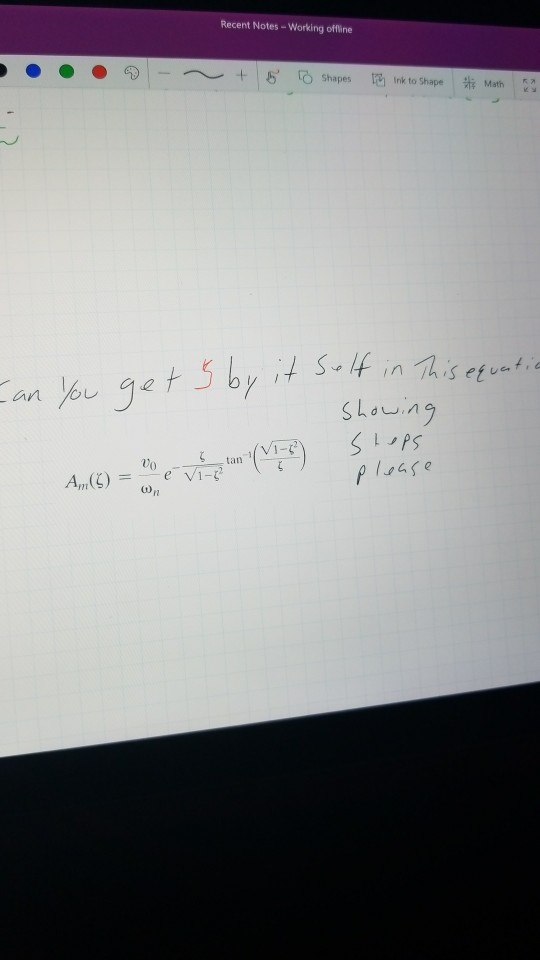 Recent Notes – Working offline
Shapes
Ink to Shape
Math
Can You get ζ by it Self in This equatio
showing
steps
please
A_m(ζ) = v_0/ω_n e^{-ζ/√(1-ζ²) tan^{-1}(√(1-ζ²)/ζ)}